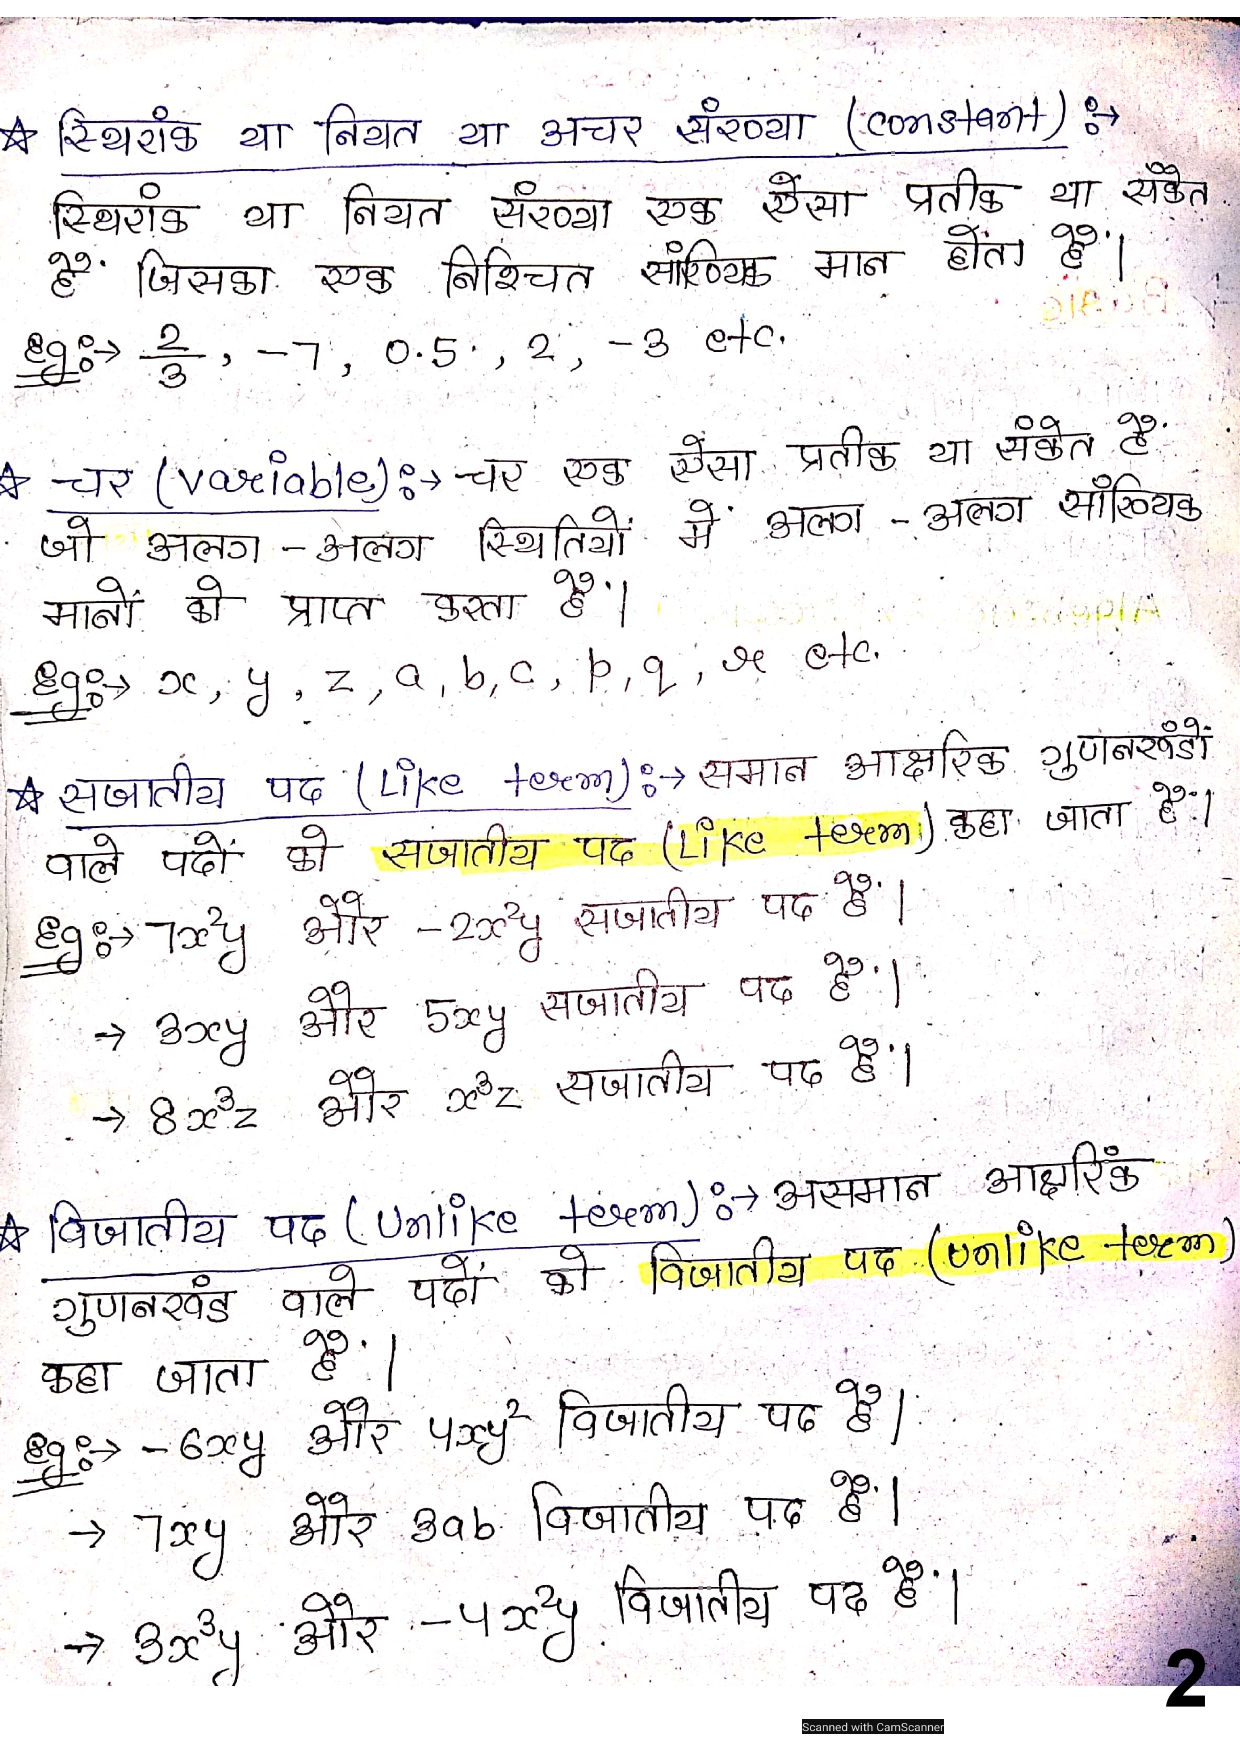 ☆ स्थिरांक या नियत या अचर संख्या (constant) :→
स्थिरांक या नियत संख्या एक ऐसा प्रतीक या संकेत
हैं जिसका एक निश्चित सांख्यिक मान होता हैं।
Eg:→ 2/3, -7, 0.5, 2, -3 etc.
☆ चर (variable) :→ चर एक ऐसा प्रतीक या संकेत हैं
जो अलग-अलग स्थितियों में अलग-अलग सांख्यिक
मानों को प्राप्त करता हैं।
Eg:→ x, y, z, a, b, c, p, q, r etc.
☆ सजातीय पद (Like term) :→ समान आक्षरिक गुणनखंडों
वाले पदों को सजातीय पद (Like term) कहा जाता हैं।
Eg:→ 7x²y और -2x²y सजातीय पद हैं।
→ 3xy और 5xy सजातीय पद हैं।
→ 8x³z और x³z सजातीय पद हैं।
☆ विजातीय पद (Unlike term) :→ असमान आक्षरिंक
गुणनखंड वाले पदों को विजातीय पद (Unlike term)
कहा जाता हैं।
Eg:→ -6xy और 4xy² विजातीय पद है।
→ 7xy और 3ab विजातीय पद हैं।
→ 3x³y और -4x²y विजातीय पद हैं।
2
Scanned with CamScanner